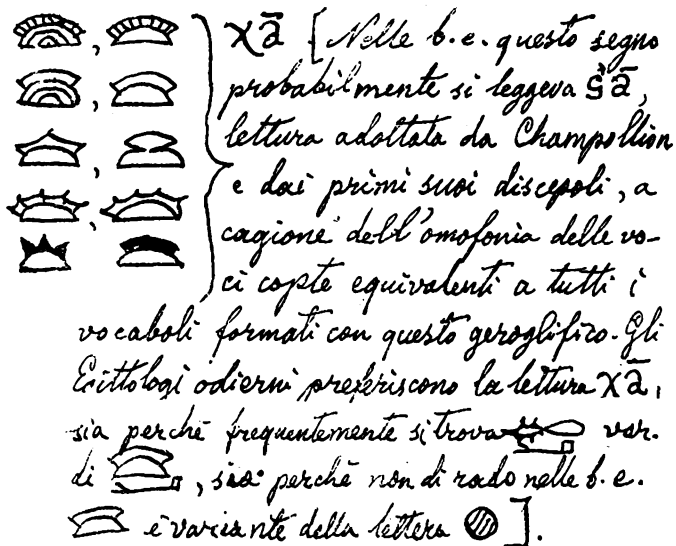 χā [Nelle b.e. questo segno
probabilmente si leggeva S̀ā,
lettura adottata da Champollion
e dai primi suoi discepoli, a
cagione dell'omofonia delle vo-
ci copte equivalenti a tutti i
vocaboli formati con questo geroglifico. Gli
Egittologi odierni preferiscono la lettura χā,
sia perché frequentemente si trova var.
di , sia perché non di rado nelle b.e.
è variante della lettera ].